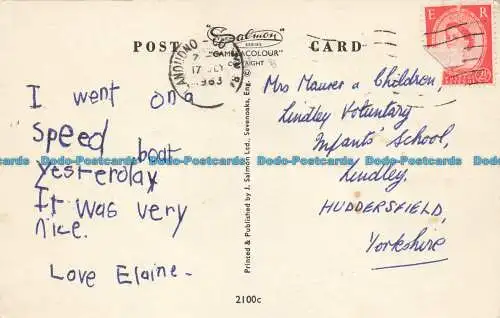 POST CARD
"Salmon
SERIES
"CAMERACOLOUR"
E R
LLANDUDNO
17
1963
I went on a
speed boat
yesterday
It was very
nice.
Love Elaine -
Printed & Published by J. Salmon Ltd., Sevenoaks, Eng.
Mrs Maurer & Children,
Lindley Voluntary
Infants' School,
Lindley,
HUDDERSFIELD,
Yorkshire
Dodo-Postcards Dodo-Postcards Dodo-Postcards Dodo-Postcards Dodo-Postcards
2100c